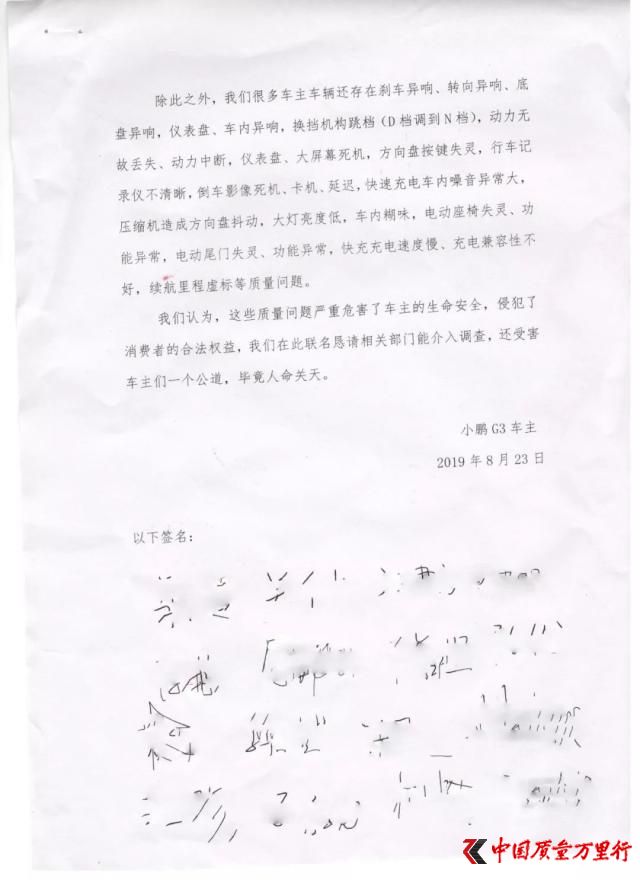 除此之外，我们很多车主车辆还存在刹车异响、转向异响、底
盘异响，仪表盘、车内异响，换挡机构跳档（D档调到N档），动力无
故丢失、动力中断，仪表盘、大屏幕死机，方向盘按键失灵，行车记
录仪不清晰，倒车影像死机、卡机、延迟，快速充电车内噪音异常大，
压缩机造成方向盘抖动，大灯亮度低，车内糊味，电动座椅失灵、功
能异常，电动尾门失灵、功能异常，快充充电速度慢、充电兼容性不
好，续航里程虚标等质量问题。
我们认为，这些质量问题严重危害了车主的生命安全，侵犯了
消费者的合法权益，我们在此联名恳请相关部门能介入调查，还受害
车主们一个公道，毕竟人命关天。
小鹏G3车主
2019年8月23日
以下签名：
中国质量万里行